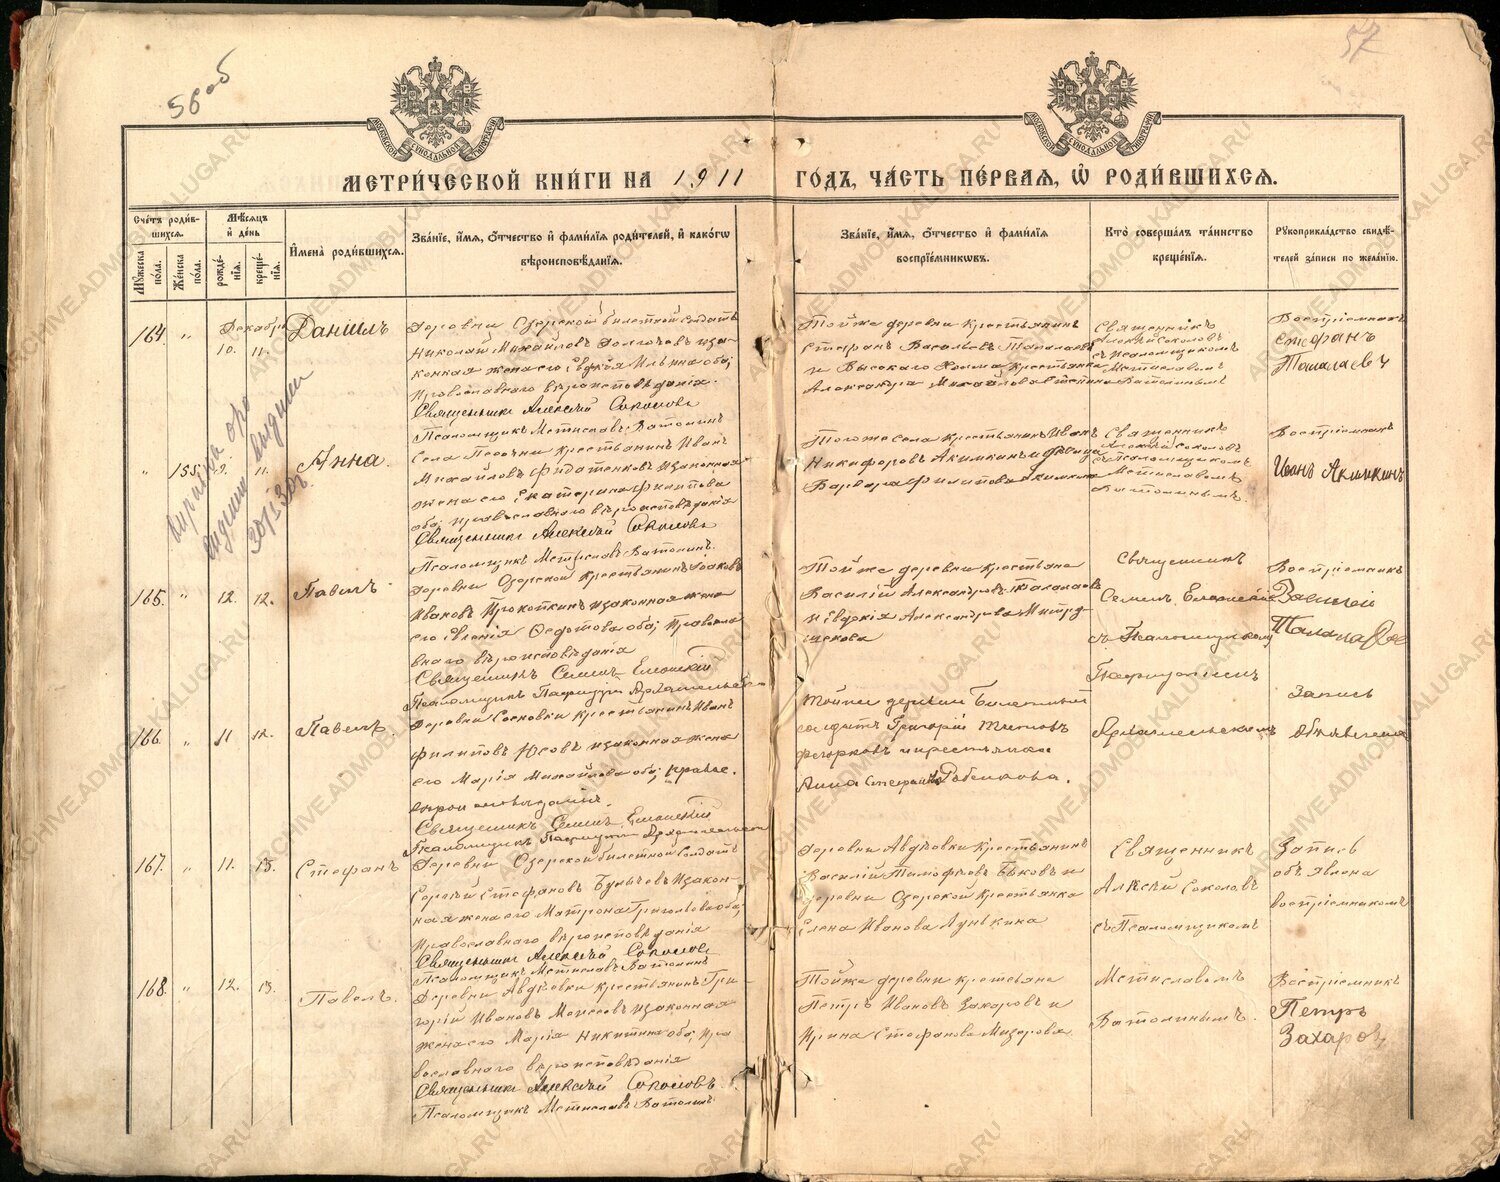 56 об
57
МЕТРИЧЕСКОЙ КНИГИ НА 1911 ГОДЪ, ЧАСТЬ ПЕРВАЯ, Ѡ РОДИВШИХСЯ.
Счетъ родившихся.
Мужеска пола.
Женска пола.
Мѣсяцъ и день
рожденія.
крещенія.
Имена родившихся.
Званіе, имя, отчество и фамилія родителей, и какогѡ вѣроисповѣданія.
Званіе, имя, отчество и фамилія воспріемниковъ.
Кто совершалъ таинство крещенія.
Рукоприкладство свидѣтелей записи по желанію.
164. " Декабрь 10. 11. Даниилъ
Деревни Озерской билетной солдатъ
Николай Михайловъ
законная жена его Евдокія Ильина оба,
Православнаго вѣроисповѣданія.
Священникъ Алексѣй Соколовъ
Псаломщикъ Мстиславъ Ватолинъ
Тойже деревни крестьянинъ
Стефанъ Васильевъ
и Высскаго Холма крестьянка
Александра Михайлова
Священникъ
Алексѣй Соколовъ
съ Псаломщикомъ
Мстиславомъ
Ватолинымъ
Воспріемникъ
Стефанъ
" 155. 9. 11. Анна.
Села Песочни крестьянинъ Иванъ
Михайловъ Филатенковъ и законная
жена его Екатерина Филипова
оба, православнаго вѣроисповѣданія
Священникъ Алексѣй Соколовъ
Псаломщикъ Мстиславъ Ватолинъ.
Тогоже села крестьянинъ Иванъ
Никифоровъ Акимкинъ и
Варвара Филипова
Священникъ
Алексѣй Соколовъ
съ Псаломщикомъ
Мстиславомъ
Ватолинымъ.
Воспріемникъ
Иванъ Акимкинъ
30/I 30г
165. " 12. 12. Павелъ
Деревни Озерской крестьянинъ Іоаковъ
Ивановъ Прокоткинъ и законная жена
его Евгенія Федотова оба, Православнаго
вѣроисповѣданія
Священникъ Семенъ
Псаломщикъ Пафнутій Архангельскій
Тойже деревни крестьяне
Василій Александровъ
и Евдокія Александрова
Священникъ
Семенъ
съ Псаломщикомъ
Пафнутіемъ
Воспріемникъ
Василій
166. " 11 12. Павелъ.
Деревни Сосновки крестьянинъ Иванъ
Филиповъ Юсовъ и законная жена
его Марія Михайлова оба,
Священникъ Семенъ
Псаломщикъ Пафнутій Архангельскій
Тойже деревни билетный
солдатъ Григорій Титовъ
Федорковъ и крестьянка
Анна
Архангельскимъ
Запись
объявлена
167. " 11. 13. Стефанъ
Деревни Озерской билетной солдатъ
Сергѣй Стефановъ Булычевъ и законная
жена его Матрона Григорьева оба,
Православнаго вѣроисповѣданія
Священникъ Алексѣй Соколовъ
Псаломщикъ Мстиславъ Ватолинъ
Деревни Авдѣевки крестьянинъ
Василій Тимофѣевъ Быковъ и
деревни Озерской крестьянка
Елена Иванова Лунькина
Священникъ
Алексѣй Соколовъ
съ Псаломщикомъ
Запись
объявлена
воспріемникомъ
168. " 12. 13. Павелъ.
Деревни Авдѣевки крестьянинъ Григорій
Ивановъ Моисеевъ и законная
жена его Марія Никитина оба, Православнаго
вѣроисповѣданія
Священникъ Алексѣй Соколовъ.
Псаломщикъ Мстиславъ Ватолинъ
Тойже деревни крестьяне
Петръ Ивановъ Захаровъ и
Ирина Стефанова
Мстиславомъ
Ватолинымъ.
Воспріемникъ
Петръ
Захаровъ
ARCHIVE.ADMOBLKALUGA.RU